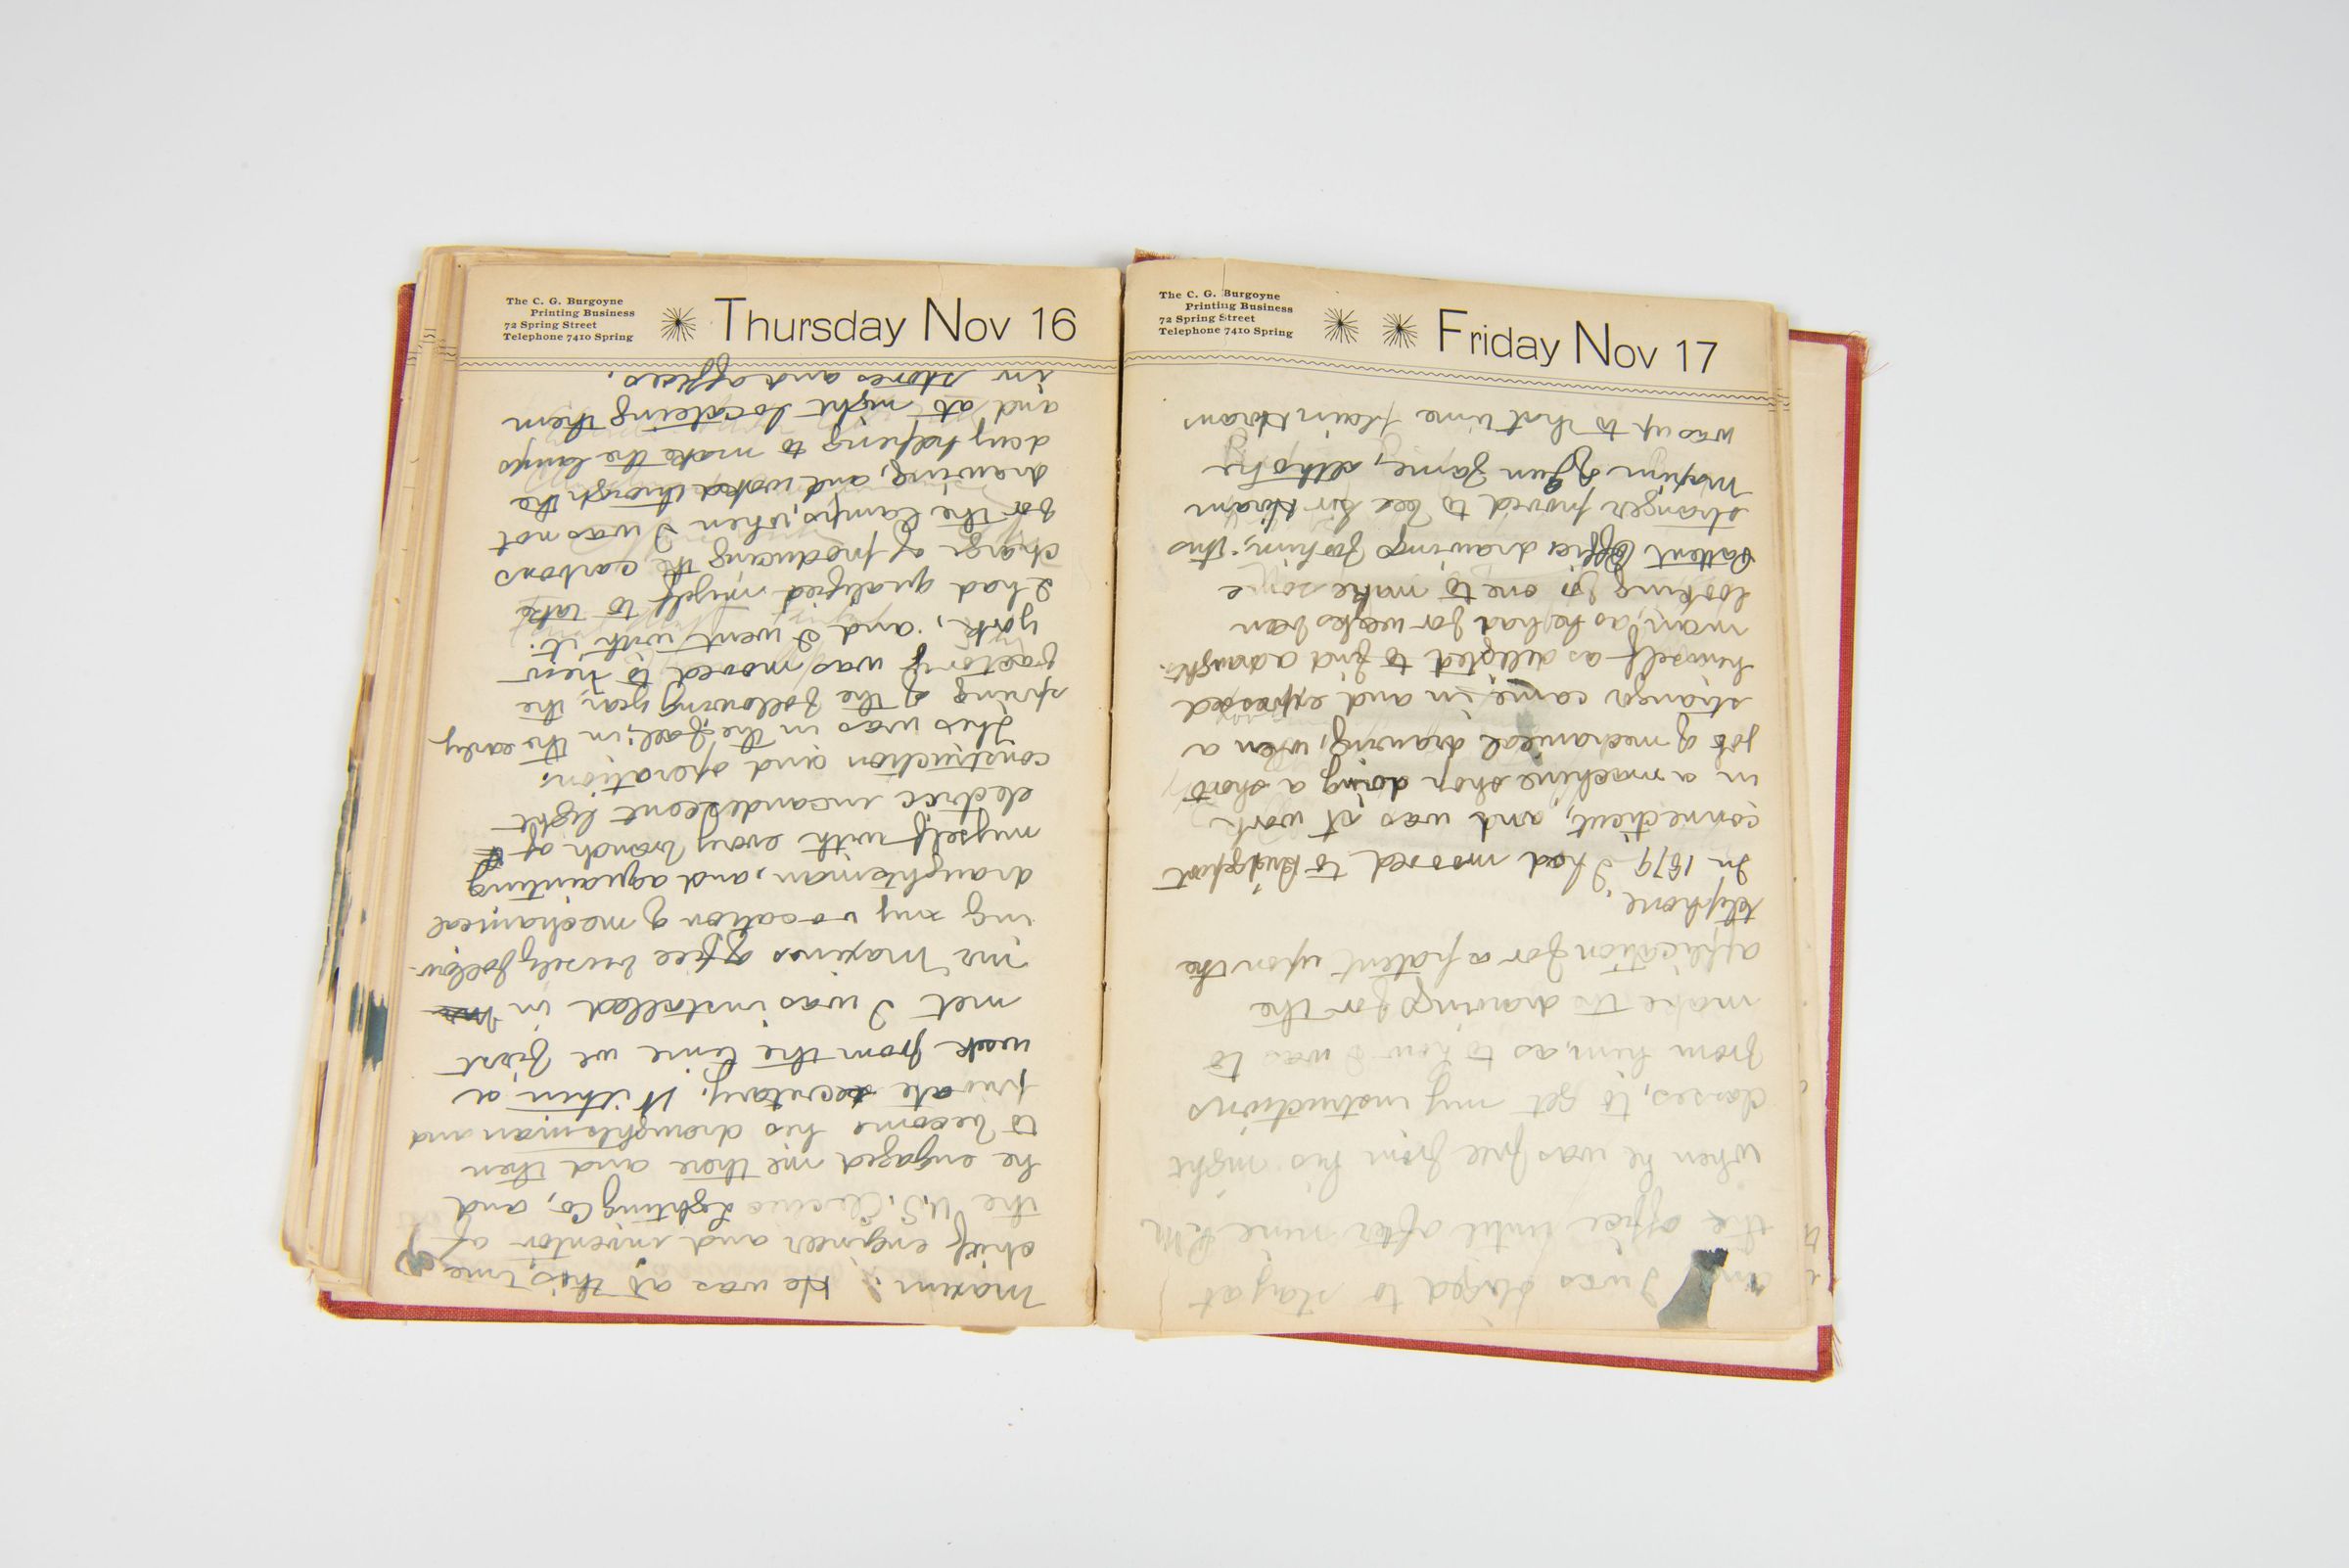 The C. G. Burgoyne
Printing Business
72 Spring Street
Telephone 7410 Spring
Thursday Nov 16
The C. G. Burgoyne
Printing Business
72 Spring Street
Telephone 7410 Spring
Friday Nov 17
and I was obliged to stay at
the office until after nine P.M
when he was free from his night
classes, to get my instructions
from him, as to how I was to
make the drawings for the
application for a patent upon the
telephone.
In 1879 I had mooved to Bridgeport
connecticut, and was at work
in a machine shop doing a short
job of mechanical drawing, when a
stranger came in and expressed
himself as delighted to find a draughts-
man, as he had for weeks been
looking for one to make some
Pattent Office drawings for him; this
stranger proved to be Sir Hiram
Maxim of Gun fame, altho he
was up to that time plain Hiram
Maxim. He was at this time
chief engineer and inventor of
the U.S. Electric Lighting Co, and
he engaged me there and then
to become his draughtsman and
private secretary; Within a
week from the time we first
met I was installed in
Mr Maxims office busily follow-
ing my vocation of mechanical
draughtsman, and acquainting
myself with every branch of
electric incandescent light
construction and operation.
This was in the fall; in the early
spring of the following year, the
factory was mooved to New
York, and I went with it.
I had qualified myself to take
charge of producing the carbons
for the lamps, when I was not
drawing, and worked through the
day helping to make the lamps
and at night locateing them
in stores and offices.